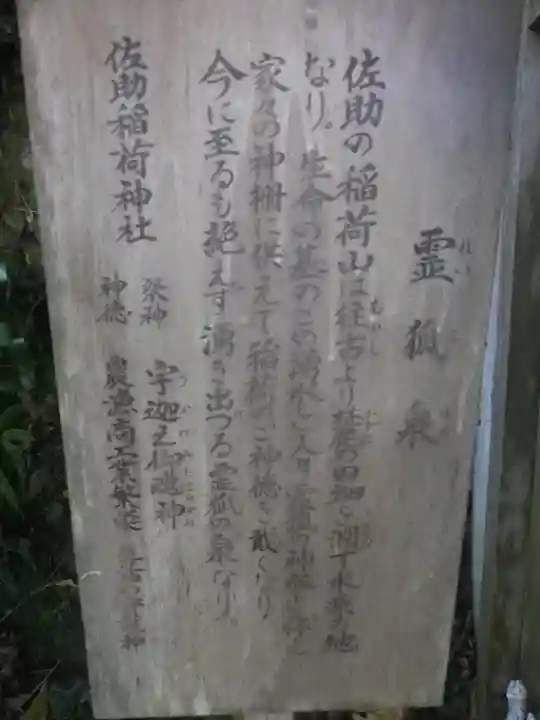 霊狐泉
佐助の稲荷山は往古より麓の田畑を潤す水源地
なり。生命の基のこの湧水を人々霊狐の神水と称え
家々の神棚に供えて稲荷のご神徳を戴くなり
今に至るも絶えず湧き出づる霊狐の泉なり。
佐助稲荷神社
祭神 宇迦之御魂神
神徳 農漁商工業繁栄